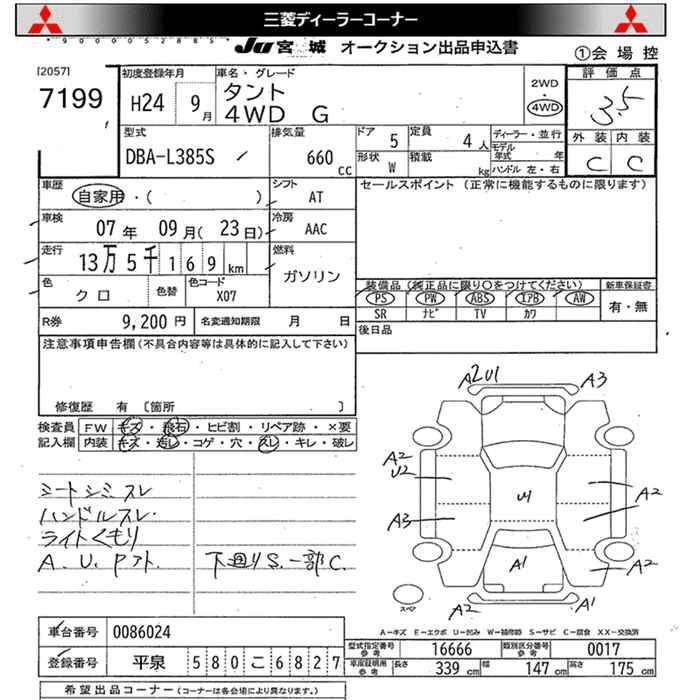 三菱ディーラーコーナー
*900052885*
JU宮城 オークション出品申込書
①会場控
[2057]
7199
初度登録年月 H24 9月
車名・グレード タント 4WD G
2WD ・ 4WD
評価点 3.5
外装 内装
C C
型式 DBA-L385S
排気量 660 CC
ドア 5 定員 4人
形状 W 積載 kg
ディーラー・並行
モデル年式 年
ハンドル 左・右
車歴 自家用・( )
シフト AT
セールスポイント (正常に機能するものに限ります)
車検 07年 09月(23日)
冷房 AAC
走行 13万5千169km
燃料 ガソリン
色 クロ 色替 色コード X07
装備品(純正品に限り○をつけてください) 新車保証書
PS PW ABS エアB AW 有・無
SR ナビ TV カワ
R券 9,200円 名変通知期限 月 日
後日品
注意事項申告欄(不具合内容等は具体的に記入して下さい)
修復歴 有 〔箇所 〕
検査員 FW キズ・飛石・ヒビ割・リペア跡・×要
記入欄 内装 キズ・汚レ・コゲ・穴・スレ・キレ・破レ
シートシミスレ
ハンドルスレ.
ライトくもり
A.U.Pフト. 下廻りS.一部C.
A2U1 A3
A2
U2 U1 A2
A3
A1 A2
スペア A2 A1
A-キズ E-エクボ U-凹み W-補修跡 S-サビ C-腐食 XX-交換済
車台番号 0086024
登録番号 平泉 580こ6827
型式指定番号 参考 16666 類別区分番号 参考 0017
車庫証明用 参考 長さ 339cm 幅 147cm 高さ 175cm
希望出品コーナー(コーナーは各会場により異なります。)